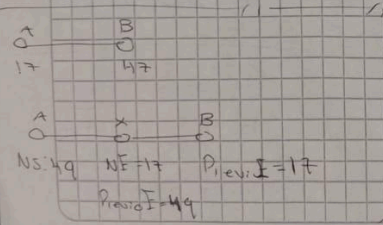 A B
17 47
A X B
NS:49 NE=17 PreviE=17
PrevioE=49